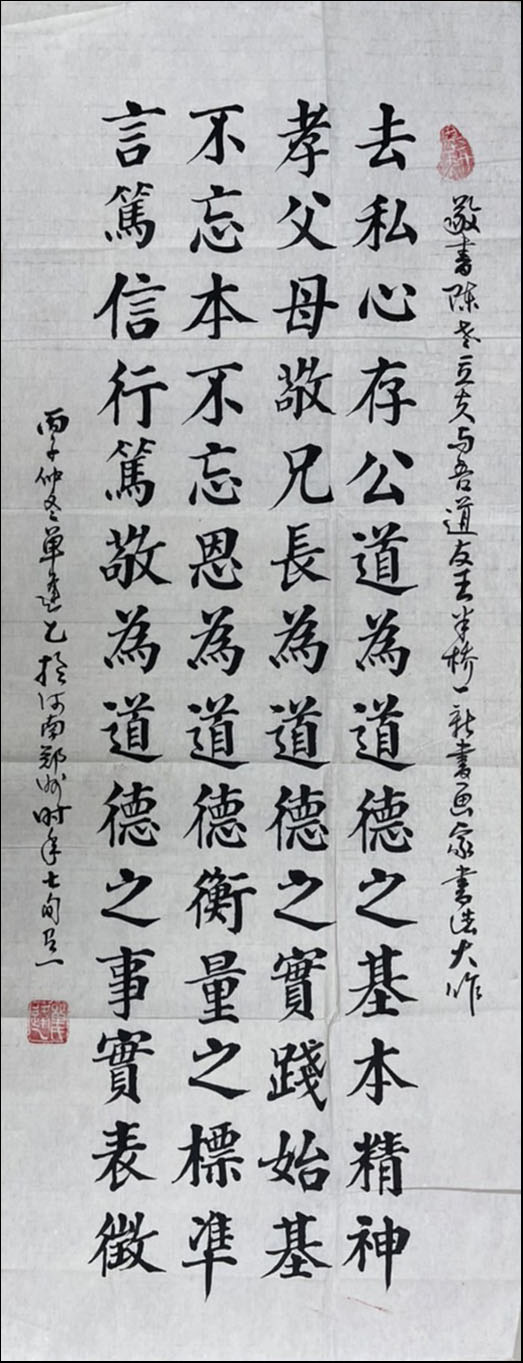 敬書陳老立夫与吾道友王半橋一新書画家書法大作
去私心存公道為道德之基本精神
孝父母敬兄長為道德之實踐始基
不忘本不忘恩為道德衡量之標準
言篤信行篤敬為道德之事實表徵
丙子仲冬單運乙於河南鄭州时年七旬